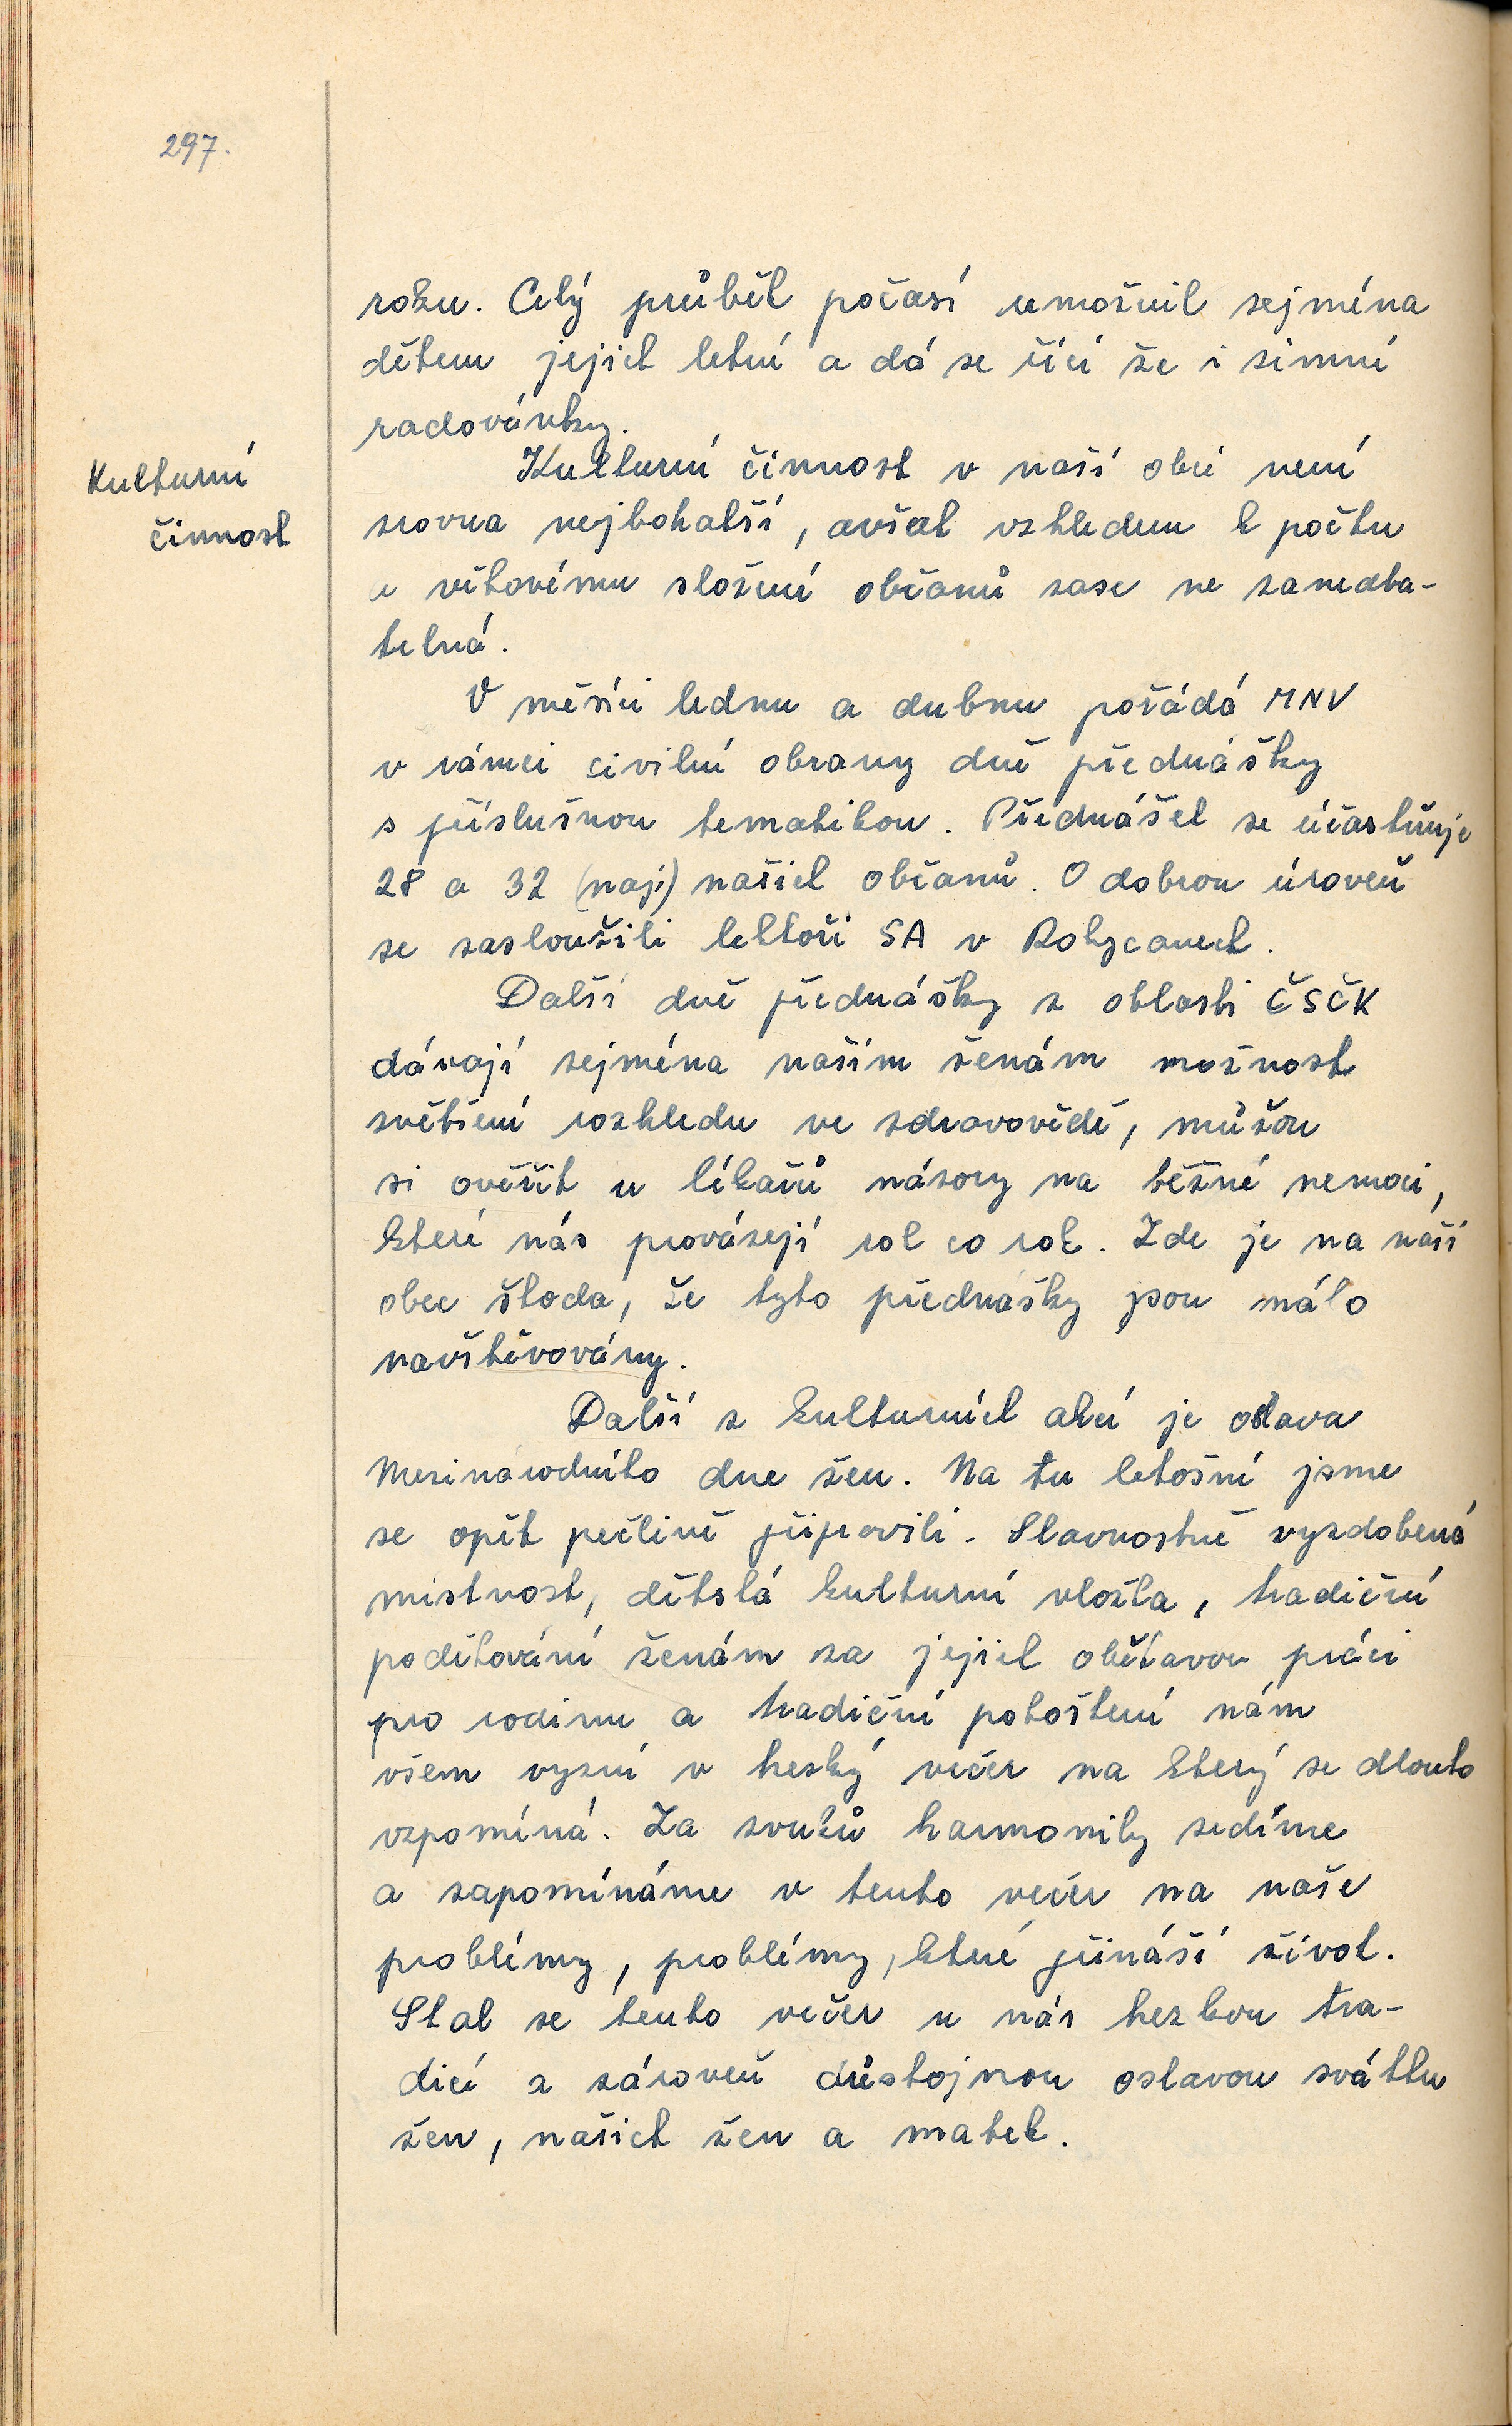 297.
roku. Celý průběh počasí umožnil zejména
dětem jejich letní a dá se říci že i zimní
radovánky.
Kulturní
činnost
Kulturní činnost v naší obci není
zrovna nejbohatší, avšak vzhledem k počtu
a věkovému složení občanů zase ne zanedba-
telná.
V měsíci lednu a dubnu pořádá MNV
v rámci civilní obrany dvě přednášky
s příslušnou tematikou. Přednášek se účastňuje
28 a 32 (naj.) našich občanů. O dobrou úroveň
se zasloužili lektoři SA v Rokycanech.
Další dvě přednášky z oblasti ČSČK
dávají zejména naším ženám možnost
zvětšení rozhledu ve zdravovědě, můžou
si ověřit u lékařů názory na běžné nemoci,
které nás provázejí rok co rok. Zde je na naší
obec škoda, že tyto přednášky jsou málo
navštěvovány.
Další z kulturních akcí je oslava
Mezinárodního dne žen. Na tu letošní jsme
se opět pečlivě připravili. Slavnostně vyzdobená
mistnost, dětská kulturní vložka, tradiční
poděkování ženám za jejich obětavou práci
pro rodinu a tradiční pohoštění nám
všem vyzní v hezký večer na který se dlouho
vzpomíná. Za zvuků harmoniky sedíme
a zapomínáme v tento večer na naše
problémy, problémy, které přináší život.
Stal se tento večer u nás hezkou tra-
dicí a zároveň důstojnou oslavou svátku
žen, našich žen a matek.